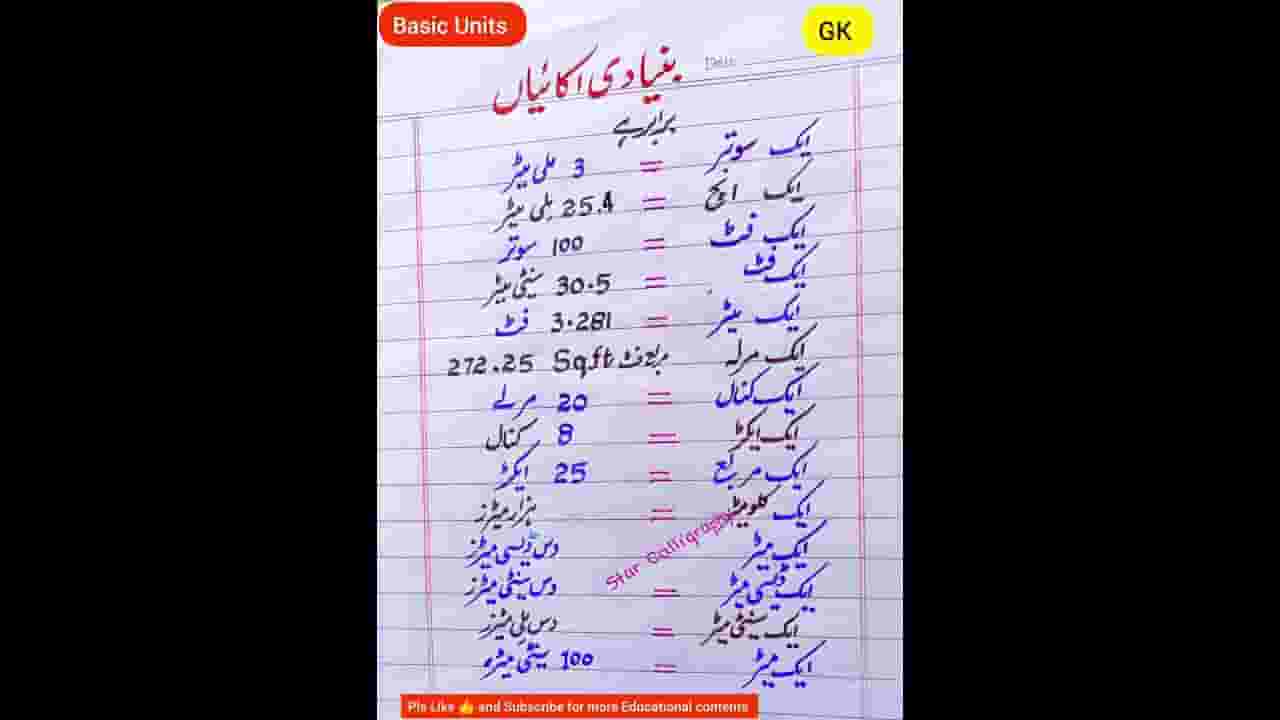 Basic Units
GK
Date
بنیادی اکائیاں
برابر ہے
ایک سوتر = 3 ملی میٹر
ایک انچ = 25.4 ملی میٹر
ایک فٹ = 100 سوتر
ایک فٹ = 30.5 سینٹی میٹر
ایک میٹر = 3.281 فٹ
ایک مرلہ مربع فٹ 272.25 Sqft
ایک کنال = 20 مرلے
ایک ایکڑ = 8 کنال
ایک مربع = 25 ایکڑ
ایک کلومیٹر = ہزار میٹرز
ایک میٹر دس ڈیسی میٹرز
ایک ڈیسی میٹر = دس سینٹی میٹرز
ایک سینٹی میٹر = دس ملی میٹرز
ایک میٹر = 100 سینٹی میٹر
Star Calligraphy
Pls Like 👍 and Subscribe for more Educational contents